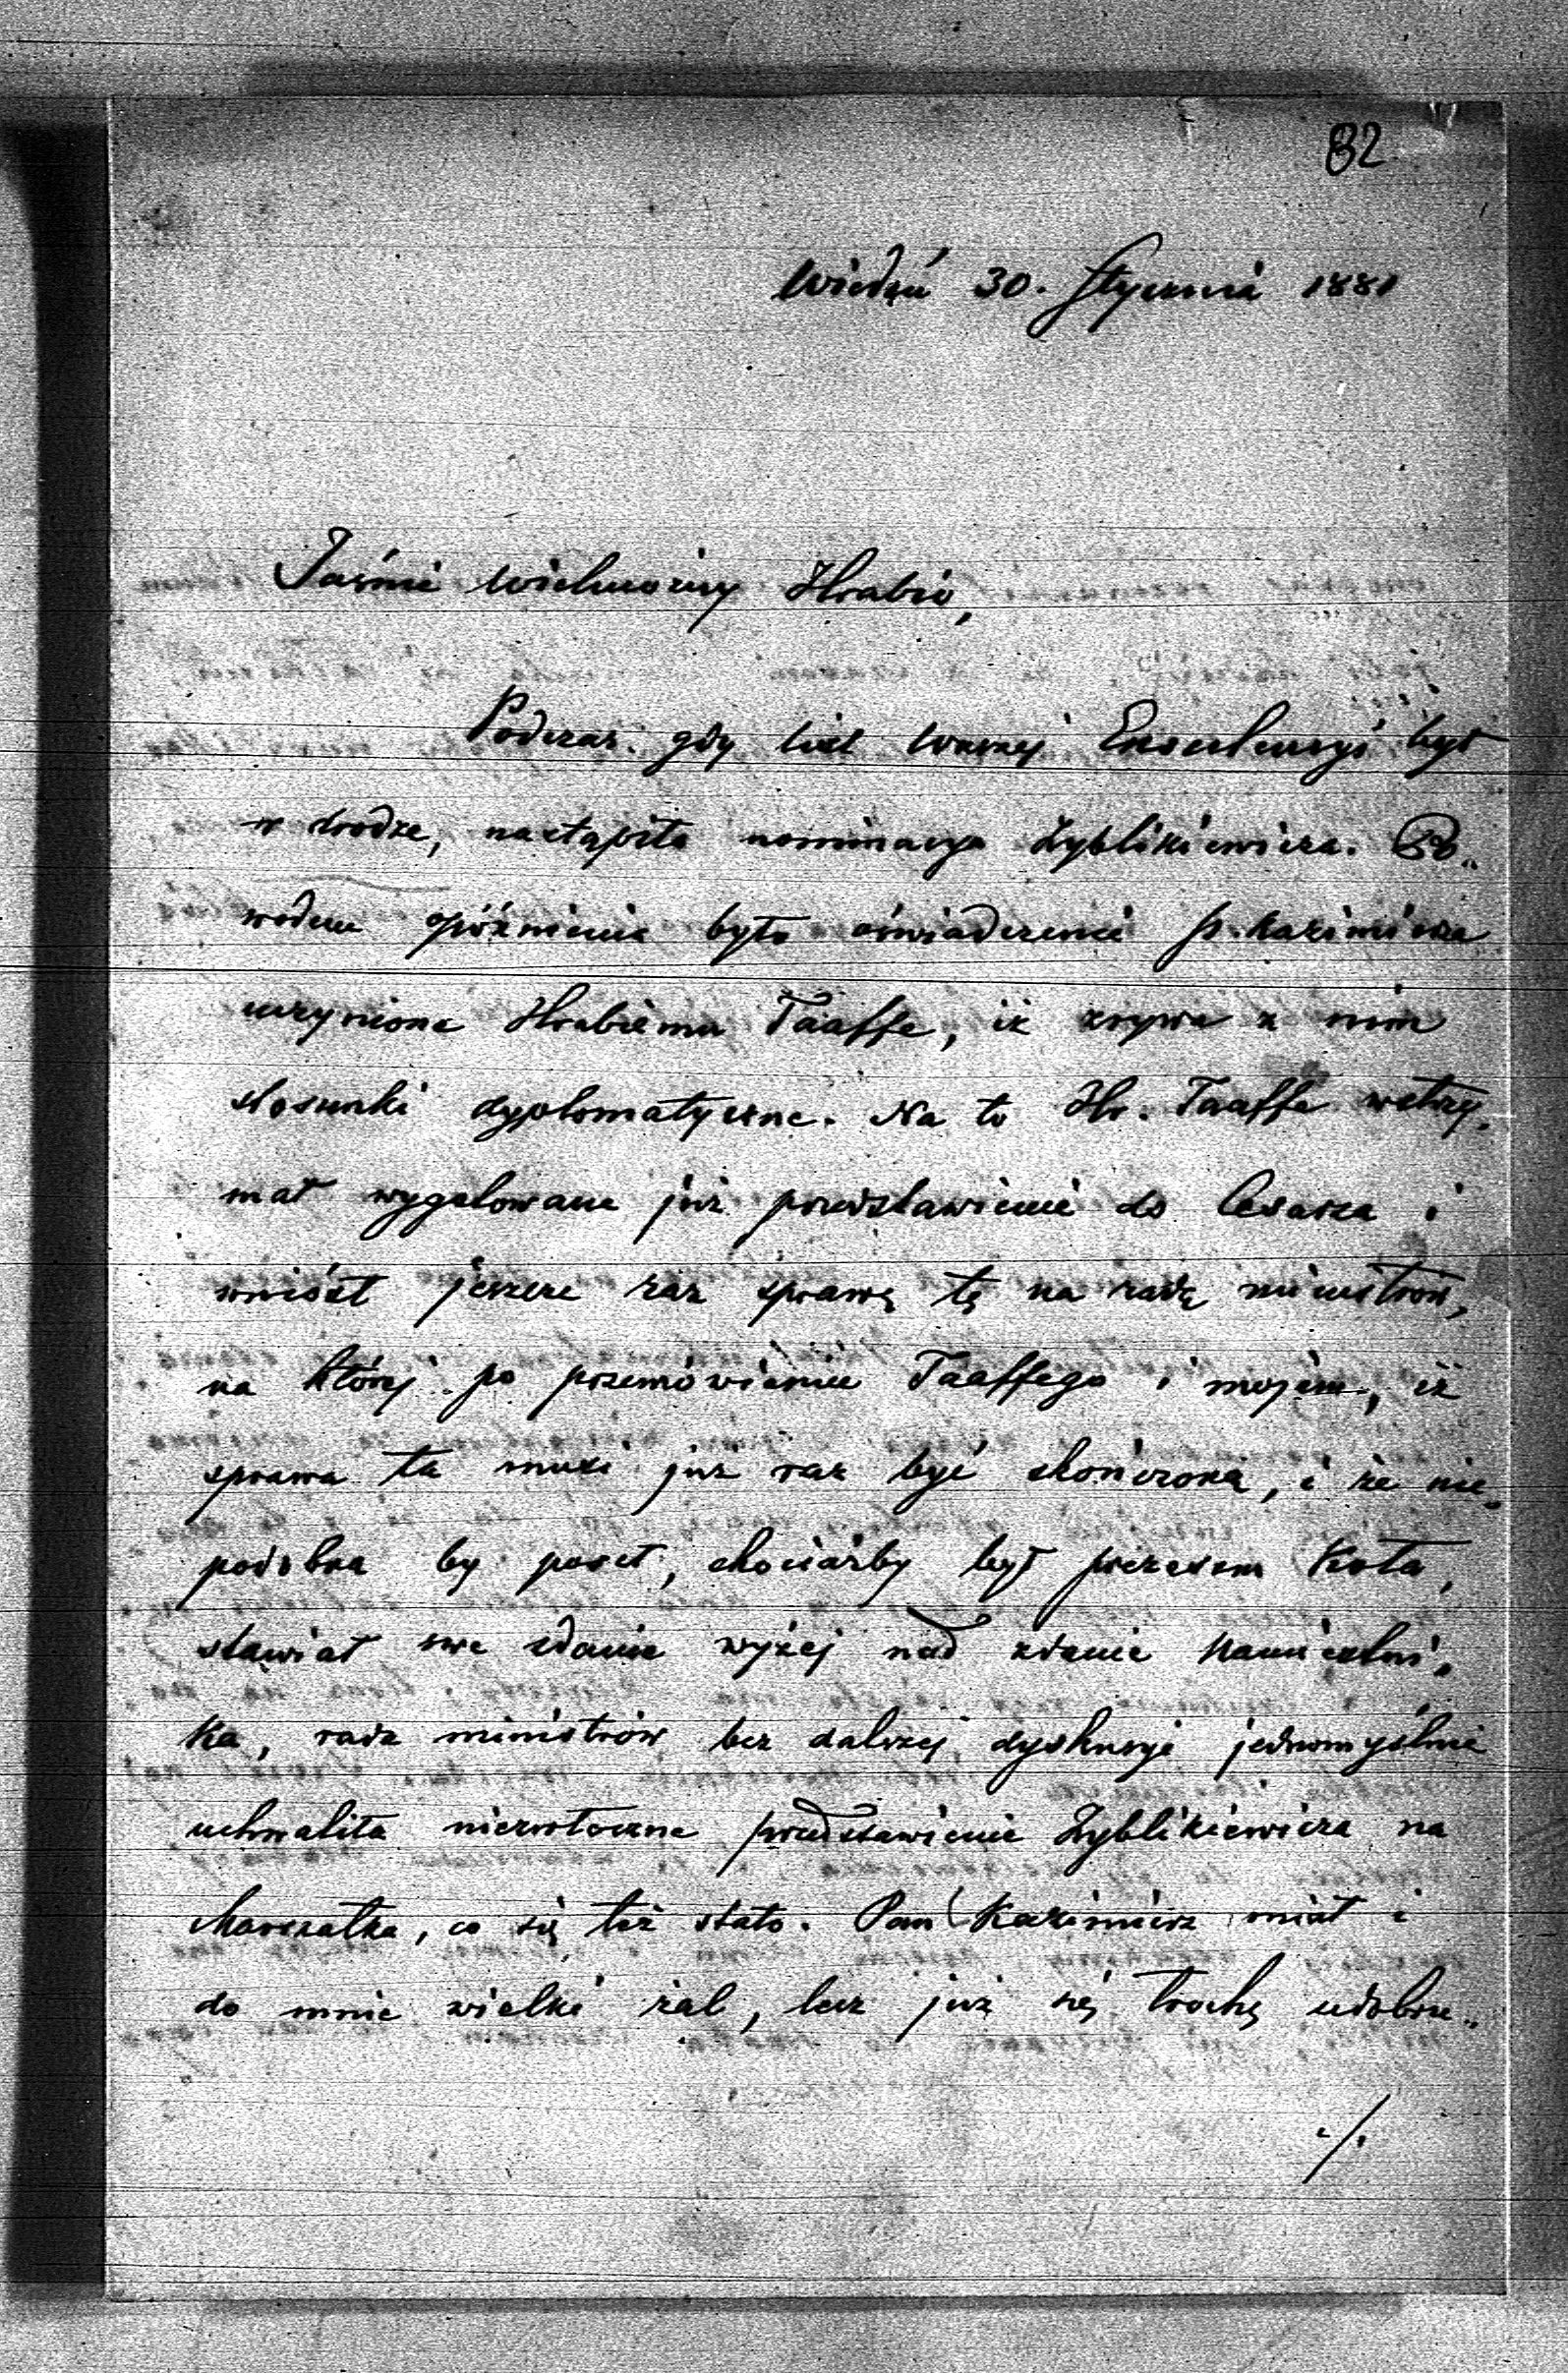 82
Wiedeń 30. Stycznia 1881
Jaśnie Wielmożny Hrabio,
Podczas gdy list Waszej Excelencyi był
w drodze, nastąpiła nominacya Zyblikiewicza. Po„
wodem opóźnienia było oświadczenie p. Kazimierza
uczynione Hrabiemu Taaffe, iż zrywa z nim
stosunki dyplomatyczne. Na to Hr. Taaffe wstrzy„
mał wygotowane już przedstawienie do Cesarza i
wniósł jeszcze raz sprawę tę na radę ministrów,
na której po przemówieniu Taaffego i mojem, iż
sprawa ta musi już raz być skończoną, i że nie„
podobna by poseł, chociażby był prezesem Koła,
stawiał swe zdanie wyżej nad zdanie Namiestni„
ka, rada ministrów bez dalszej dyskusyi jednomyślnie
uchwaliła niezwłoczne przedstawienie Zyblikiewicza na
Marszałka, co się też stało. Pan Kazimierz miał i
do mnie wielki żal, lecz już się trochę udobru„
./.